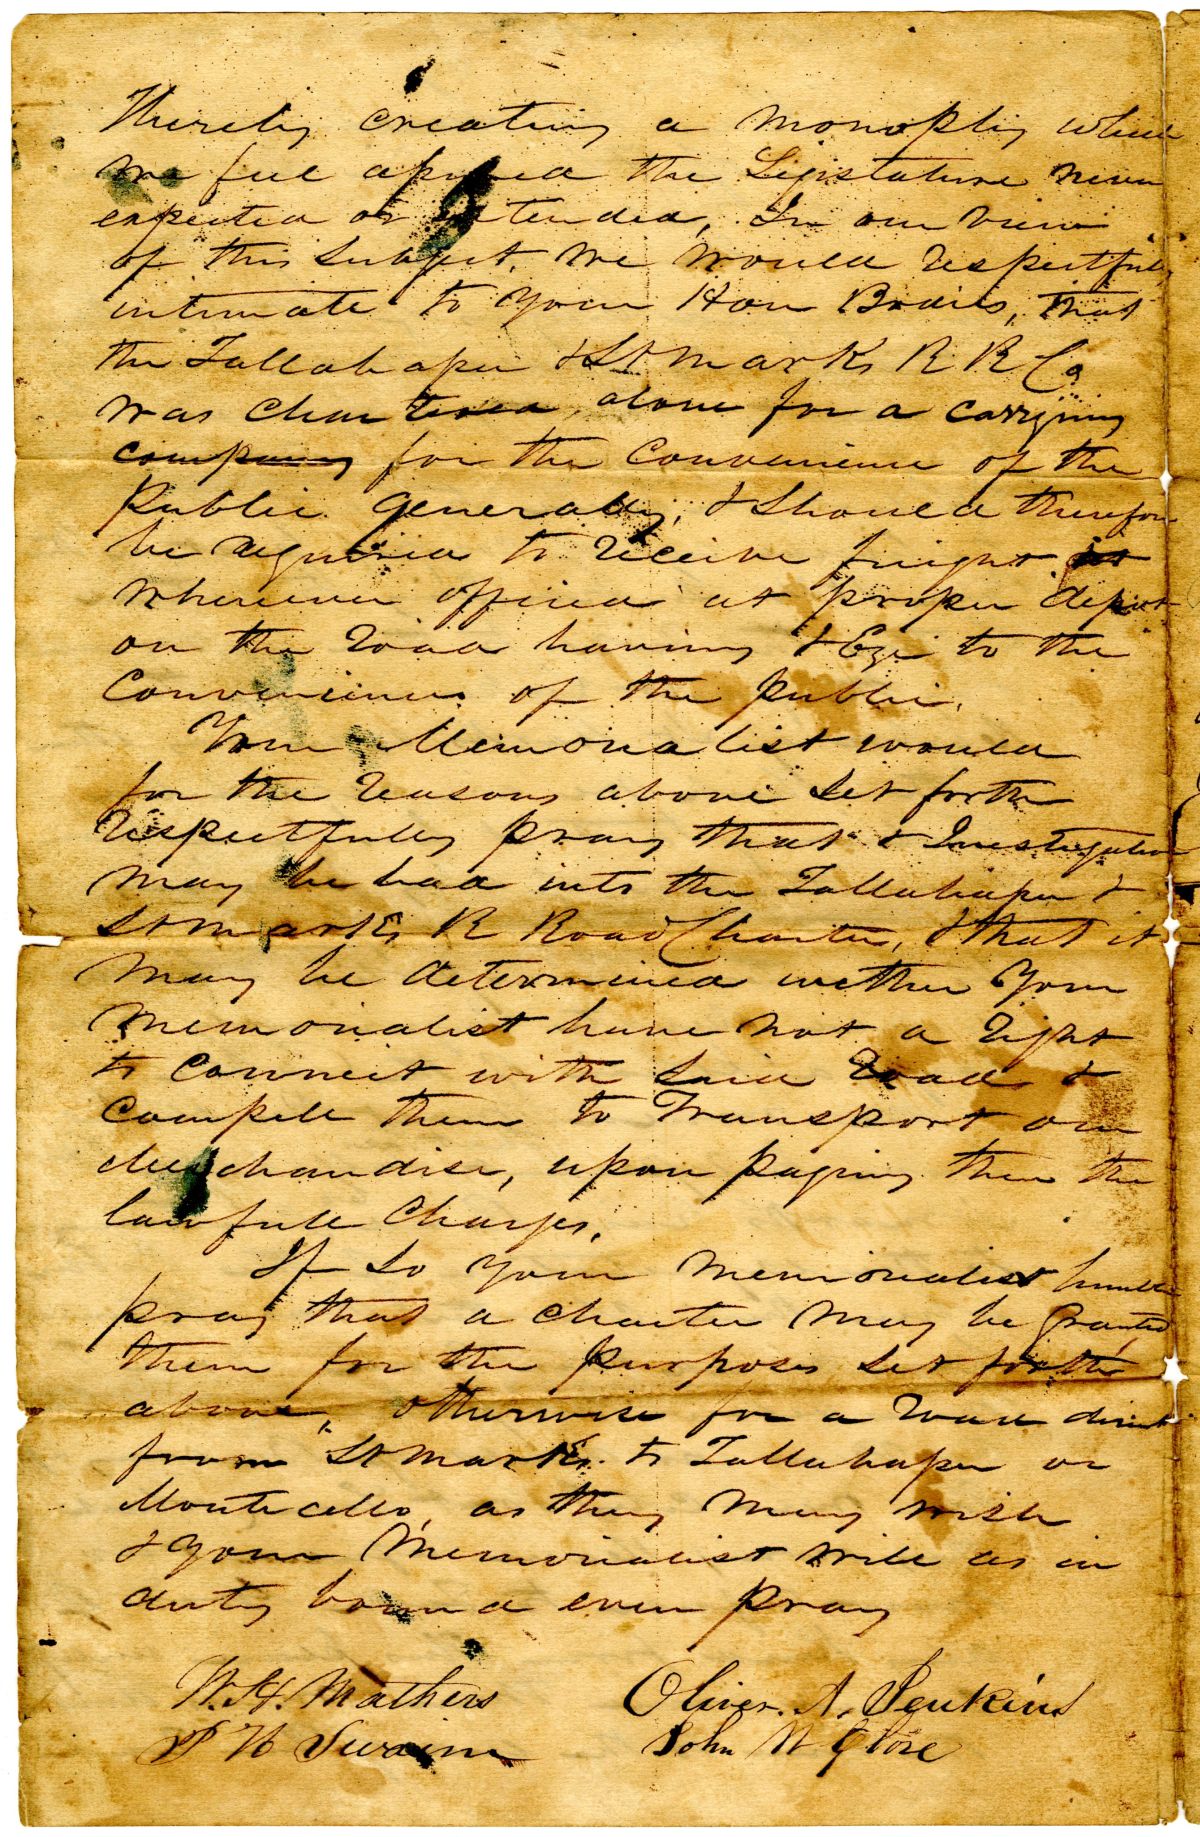 Thereby creating a monoply which
we feel apured the Legistature never
expected or intended, In our view
of this Subject, we would respectfully
intimate to your Hon Bodies, that
the Tallahapee & St Marks R R Co
was chartered, alone for a carrying
company for the Convenience of the
Public generally, & Should therefore
be required to receive freight
wherever offired at proper depots
on the road having to the
Conveniences of the public.
Your Memorialist would
for the reasons above set forth
respectfully pray that & Investigation
may be had into the Tallahapee &
St Marks R Road Charter, & that it
may be determined wether Your
memorialist have not a right
to connect with said Road &
compell them to Transport our
Merchandise, upon paying them the
lawfull Charges.
If so your memorialist humble
pray that a charter may be granted
them for the purposes set forth
above, otherwise for a road direct
from St Marks to Tallahapee or
Monticello, as they may wish
& your Memorialist will as in
duty bound ever pray
W. H. Mathers Oliver. A. Jenkins
W Swaim John W